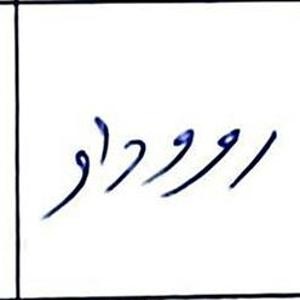 رووداو